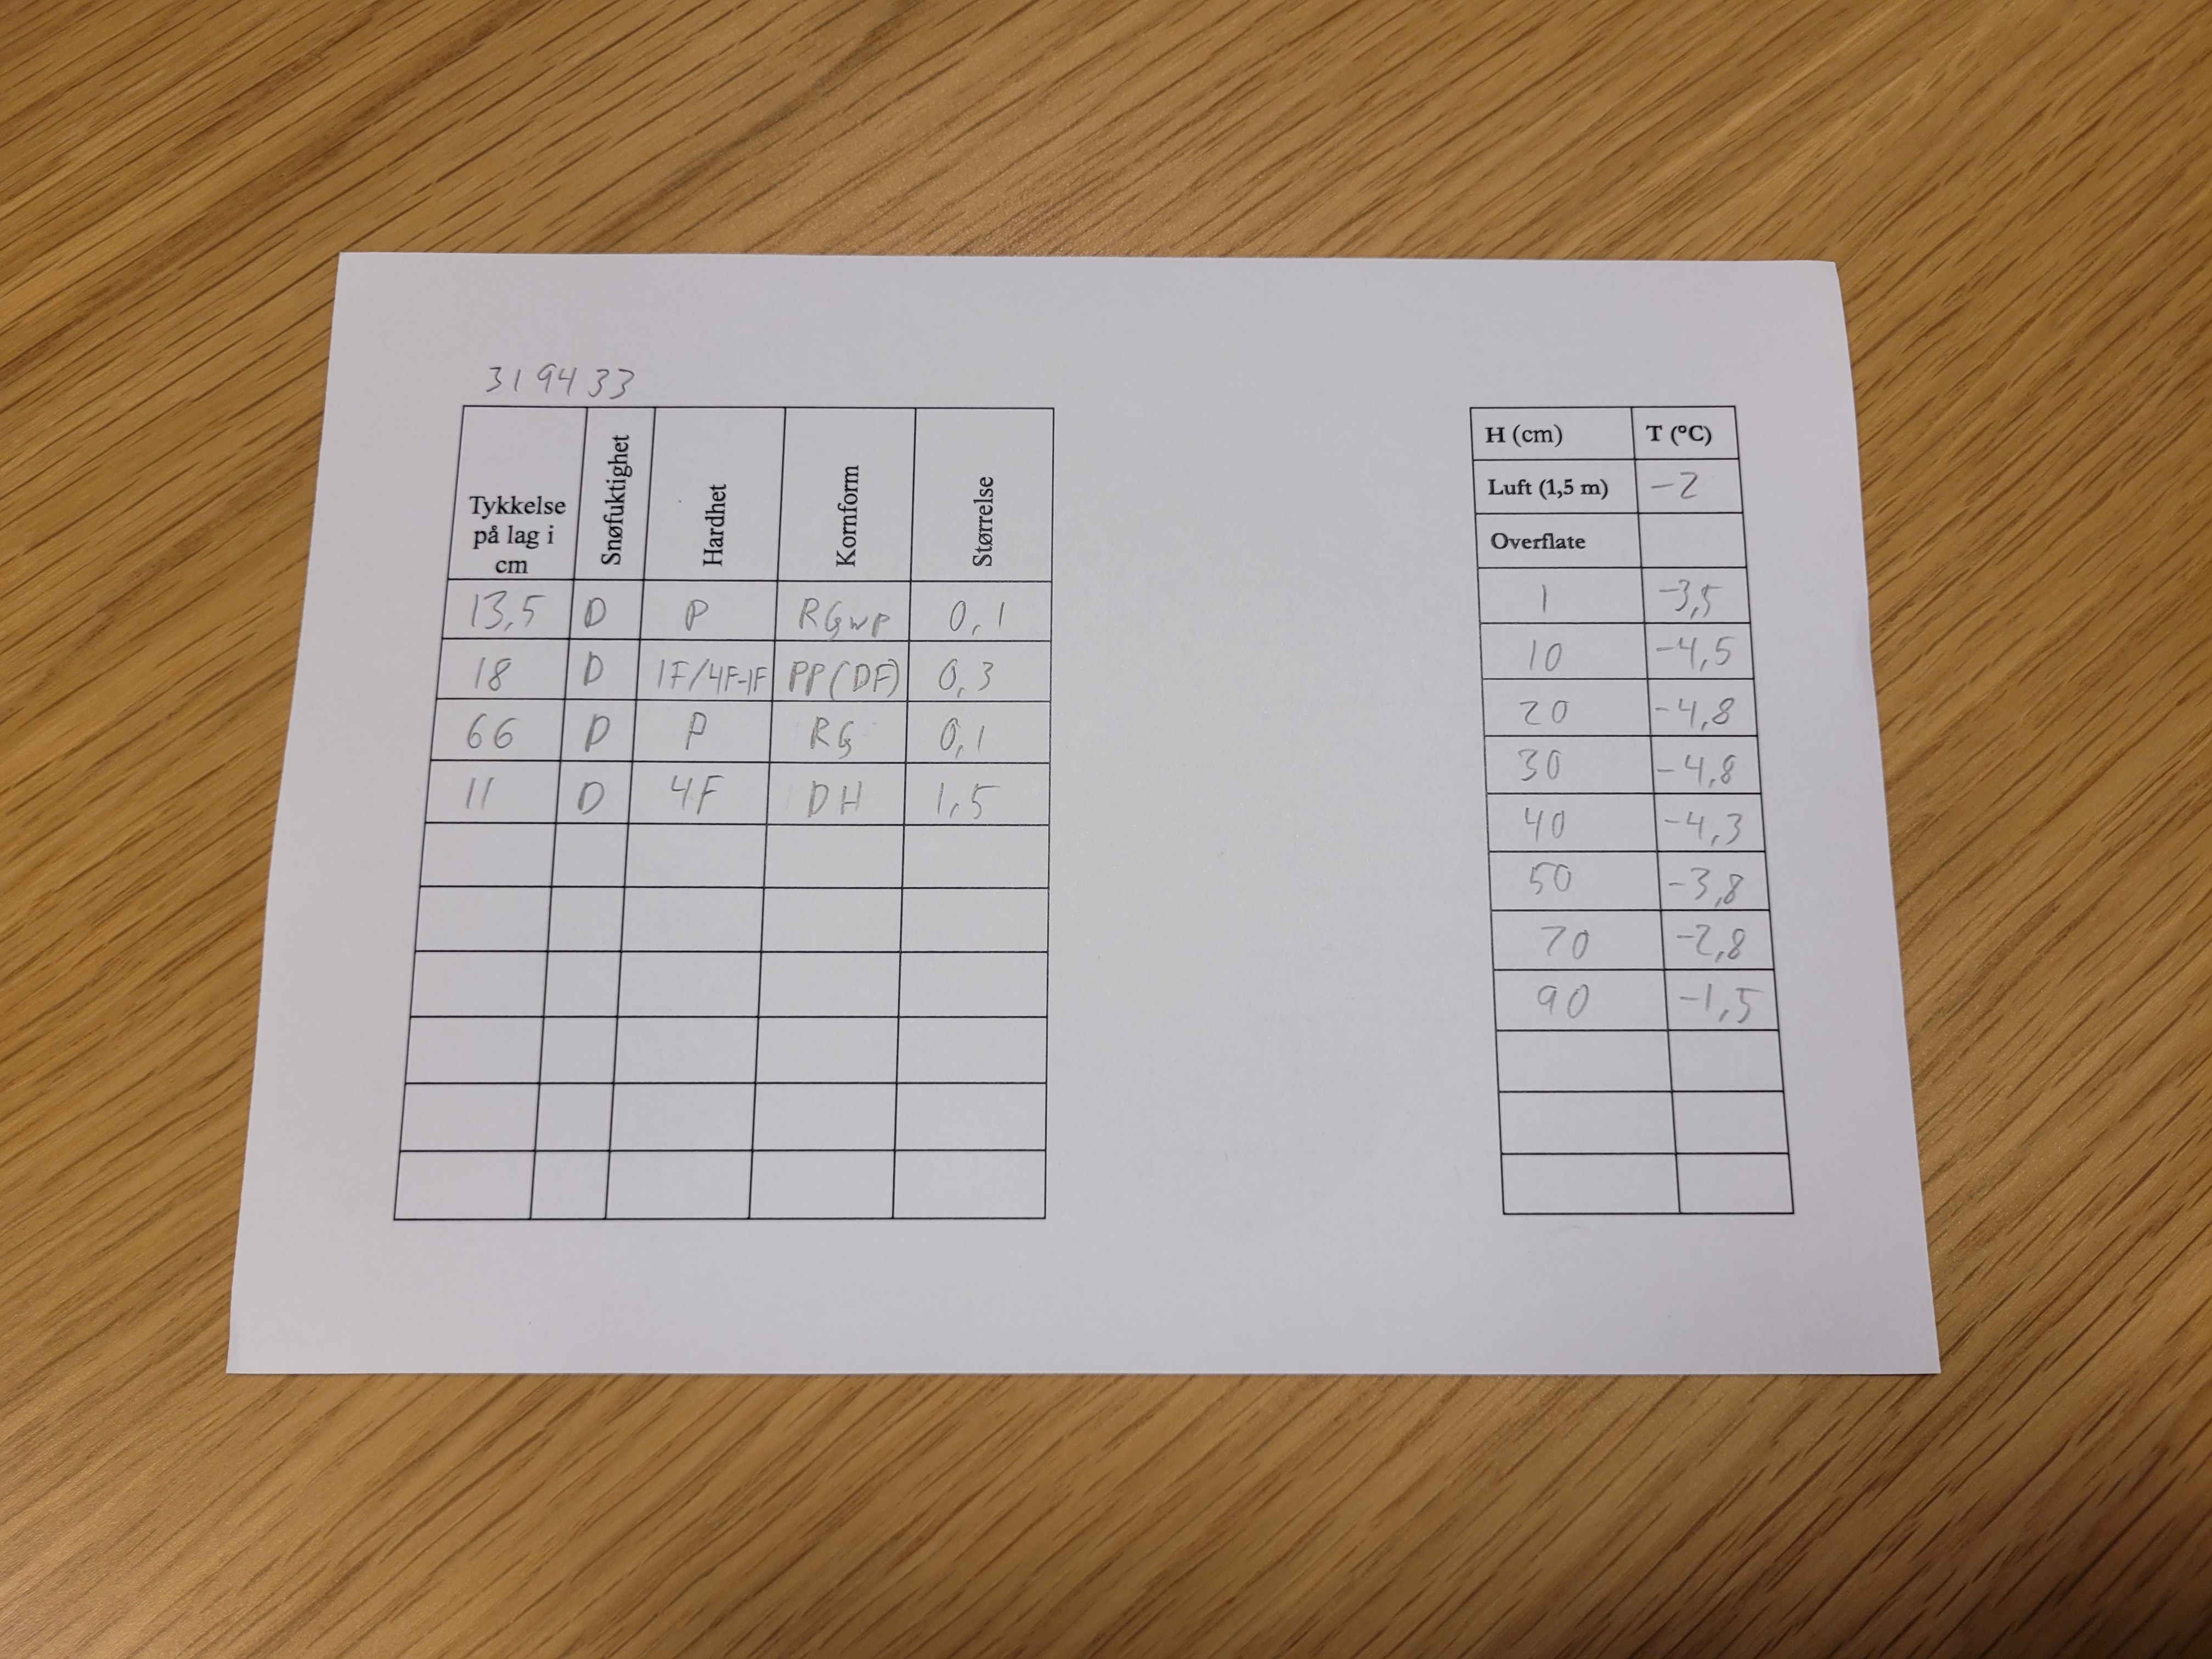 319433
Tykkelse på lag i cm Snøfuktighet Hardhet Kornform Størrelse
13,5 D P RGwp 0,1
18 D 1F/4F-1F PP(DF) 0,3
66 D P RG 0,1
11 D 4F DH 1,5
H (cm) T (°C)
Luft (1,5 m) -2
Overflate
1 -3,5
10 -4,5
20 -4,8
30 -4,8
40 -4,3
50 -3,8
70 -2,8
90 -1,5